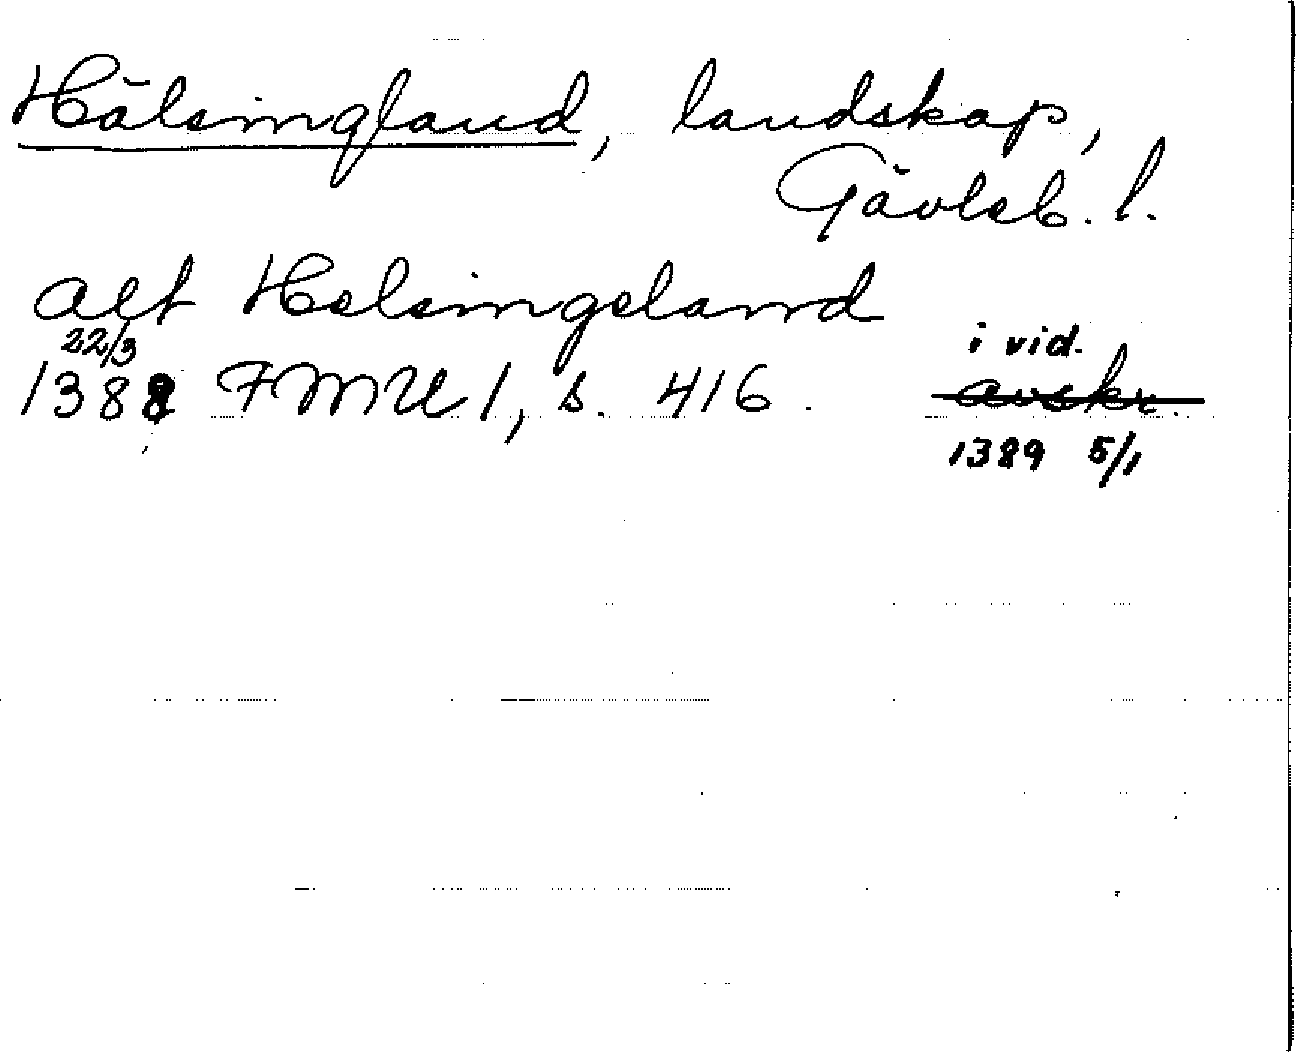 Hälsingland, landskap,
Gävleb. l.
alt Helsingeland
22/3
1388 FMU 1, s. 416. i vid.
avskr.
1389 5/1